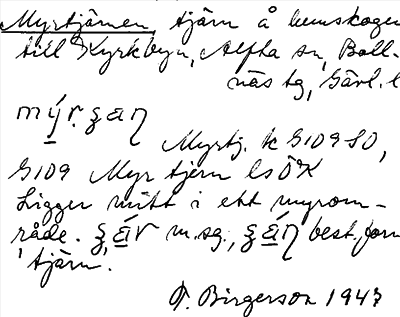 Myrtjärnen tjärn å hemskogen
till Kyrkbyn, Alfta sn, Boll-
näs tg, Gävl. l
mý̱r.ʒan
Myrtj. k G109 SO,
G109 Myr tjern ls ÖK
Ligger mitt i ett myrom-
råde. ʒa̱r m.sg., ʒa̱n best. form
'tjärn'.
T. Birgerson 1947